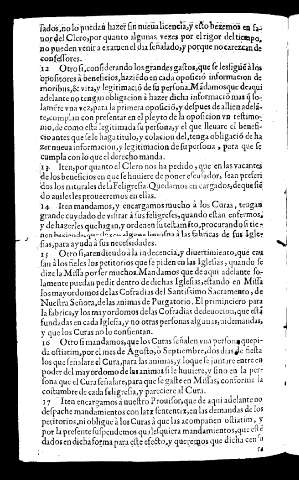 sados, no lo puedan hazer sin nueua licencia, y esto hezemos en fa-
uor del Clero, porque algunas vezes por el rigor del tiempo,
no pueden venir a examen el dia señalado, y porque no carezcan de
confessores.
12 Otrosi, considerando los grandes gastos, que se les sigue a los
opositores à beneficios, haziẽdo en cada oposiciõ informacion de
moribus, & vita, y legitimaciõ de su persona. Mãdamos que de aqui
adelante no tengan obligacion à hazer dicha informaciõ mas q̃ so-
lamẽte vna vez, para la primera oposiciõ, y despues de alli en delã-
te, cumplan con presentar en el pleyto de la oposicion vn testimo-
nio, de como esta legitimada su persona, y el que lleuare el benefi-
cio antes que se le haga titulo, y colacion del, tenga obligació de ha
zer nueua informacion, y legitimacion de su persona, para que se
cumpla con lo que el derecho manda.
13 Iten, por quanto el Clero nos ha pedido, que en las vacantes
de los beneficios en que se huuiere de poner escusador, sean preferi
dos los naturales de la Feligresia. Quedamos encargados, de que siẽ
do ausles les proueeremos en ellas.
14 Iten mandamos, y encargamos mucho à los Curas, tengan
grande cuydado de visitar à sus feligreses, quando estàn enfermos,
y de hazerles que hagan, y ordenen su testamẽto, procurando si tie-
nen hazienda, que dexen alguna limosna à las fabricas de sus Igle-
sias, para ayuda à sus necessidades.
15 Otrosi, atendiendo a la indecencia, y diuertimiento, que cau
san à los fieles los petitorios que se piden en las Iglesias, quando se
dize la Missa por ser muchos. Mandamos que de aqui adelante so-
lamente puedan pedir dentro de dichas Iglesias, estando en Missa
los mayordomos de las Cofradias del Santissimo Sacramento, de
Nuestra Señora, de las animas de Purgatorio. El primiciero para
la fabrica, y los mayordomos de las Cofradias de deuocion, que estã
fundadas en cada Iglesia, y no otras personas algunas, ni demandas,
y que los Curas no lo consientan.
16 Otrosi mandamos, que los Curas señalen vna persona que pi-
da ostiatim, por el mes de Agosto, o Septiembre, dos dias, de fiesta
los que señalare el Cura, para las animas, y lo que se juntare entre en
poder del mayordomo de las animas si le huuiere, y sino en la per-
sona que el Cura señalare, para que se gaste en Missas, conforme la
costumbre de cada feligresia, y pareciere al Cura.
17 Iten encargamos à nuestro Prouisor, que de aqui adelante no
despache mandamientos con latæ sententiæ, en las demandas de los
petitorios, ni obligue à los Curas à que las acompañen ostiatim, y
por la presente suspendemos qualesquiera mandamientos, que estẽ
dados en dicha forma para este efecto, y queremos que dicha cen su